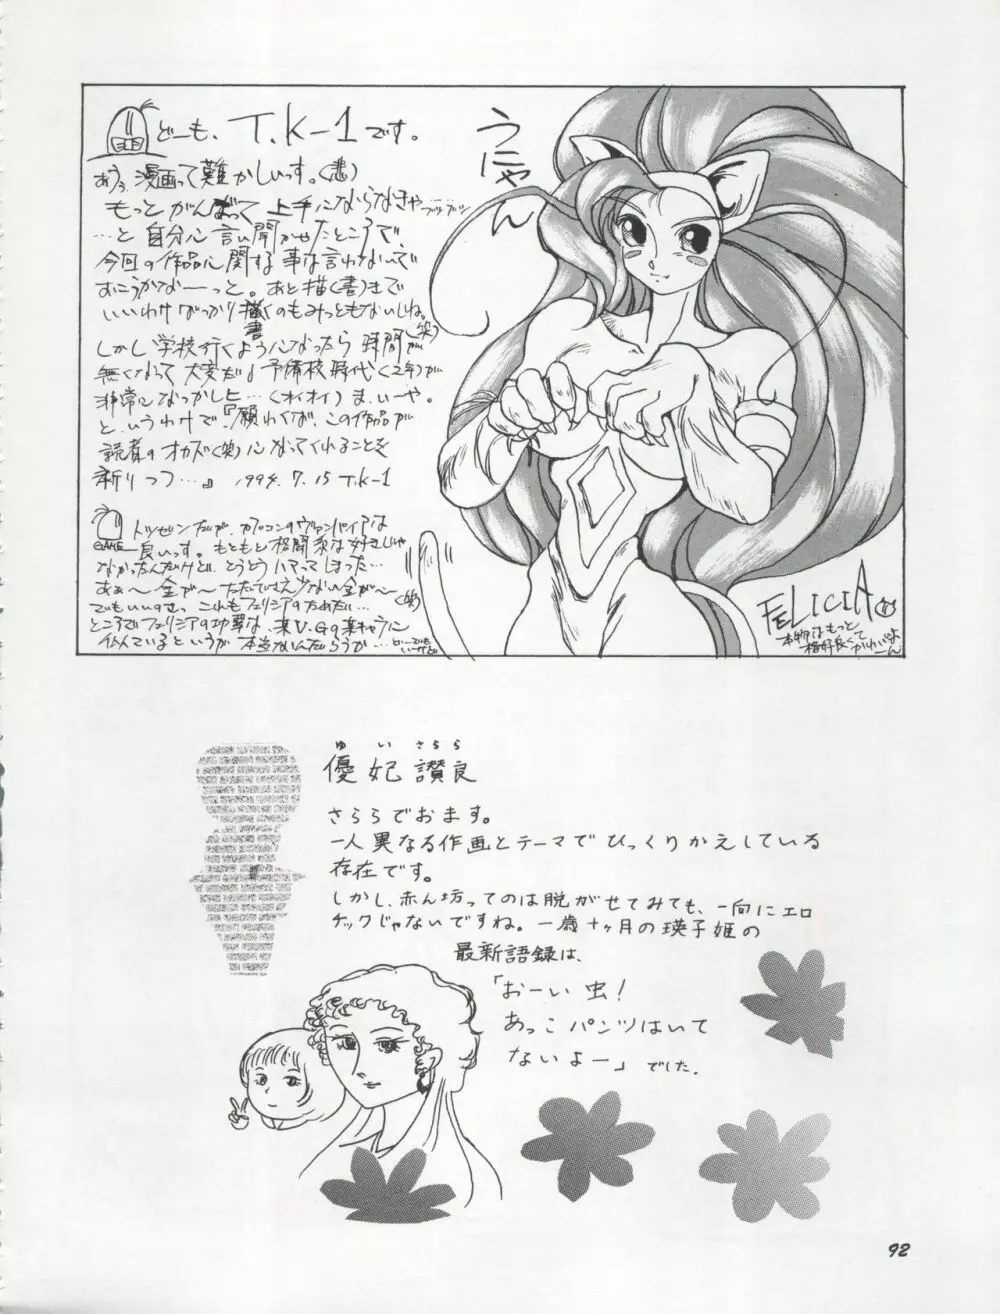 どーも、T.K-1です。
あうぅ、漫画って難かしいっす。(悲)
もっとがんばって上手にならなきゃ ブツブツ
…と自分に言い聞かせたところで
今回の作品に関する事は言わないで
おこうかなーっと。あと描(書)きで
いいわけばっかり描くのもみっともないしね。
書
(笑)
しかし学校行くようになったら時間が
無くなって大変だ。予備校時代(2年)が
非常になつかしヒ…(オイオイ)ま、いーや。
と、いうわけで、『願わくば、この作品が
読者のオカズ(笑)になってくれることを
祈りつつ…』 1994.7.15 T.K-1
GAME
トツゼンだが、カプコンのヴァンパイアは
良いっす。もともと格闘系は好きじゃ
なかったんだけど、とうとうハマってしまった…
あぁ～金が～ただでさえ少ない金が～
(笑)
でもいいのさっ これもフェリシアのためだ…
ところでフェリシアの功夢は、某V.Gの某キャラに
似ているというが 本当なんだろうか…
どーでもいーけど
うにゃん
FELICIA
本物はもっと
格好良くて
かわいいよーん
ゆ い さらら
優妃讃良
さららでおます。
一人異なる作画とテーマでひっくりかえしている
存在です。
しかし、赤ん坊ってのは脱がせてみても、一向にエロ
チックじゃないですね。一歳十ヶ月の瑛子姫の
最新語録は、
「おーい虫！
あっこパンツはいて
ないよー」でした。
92